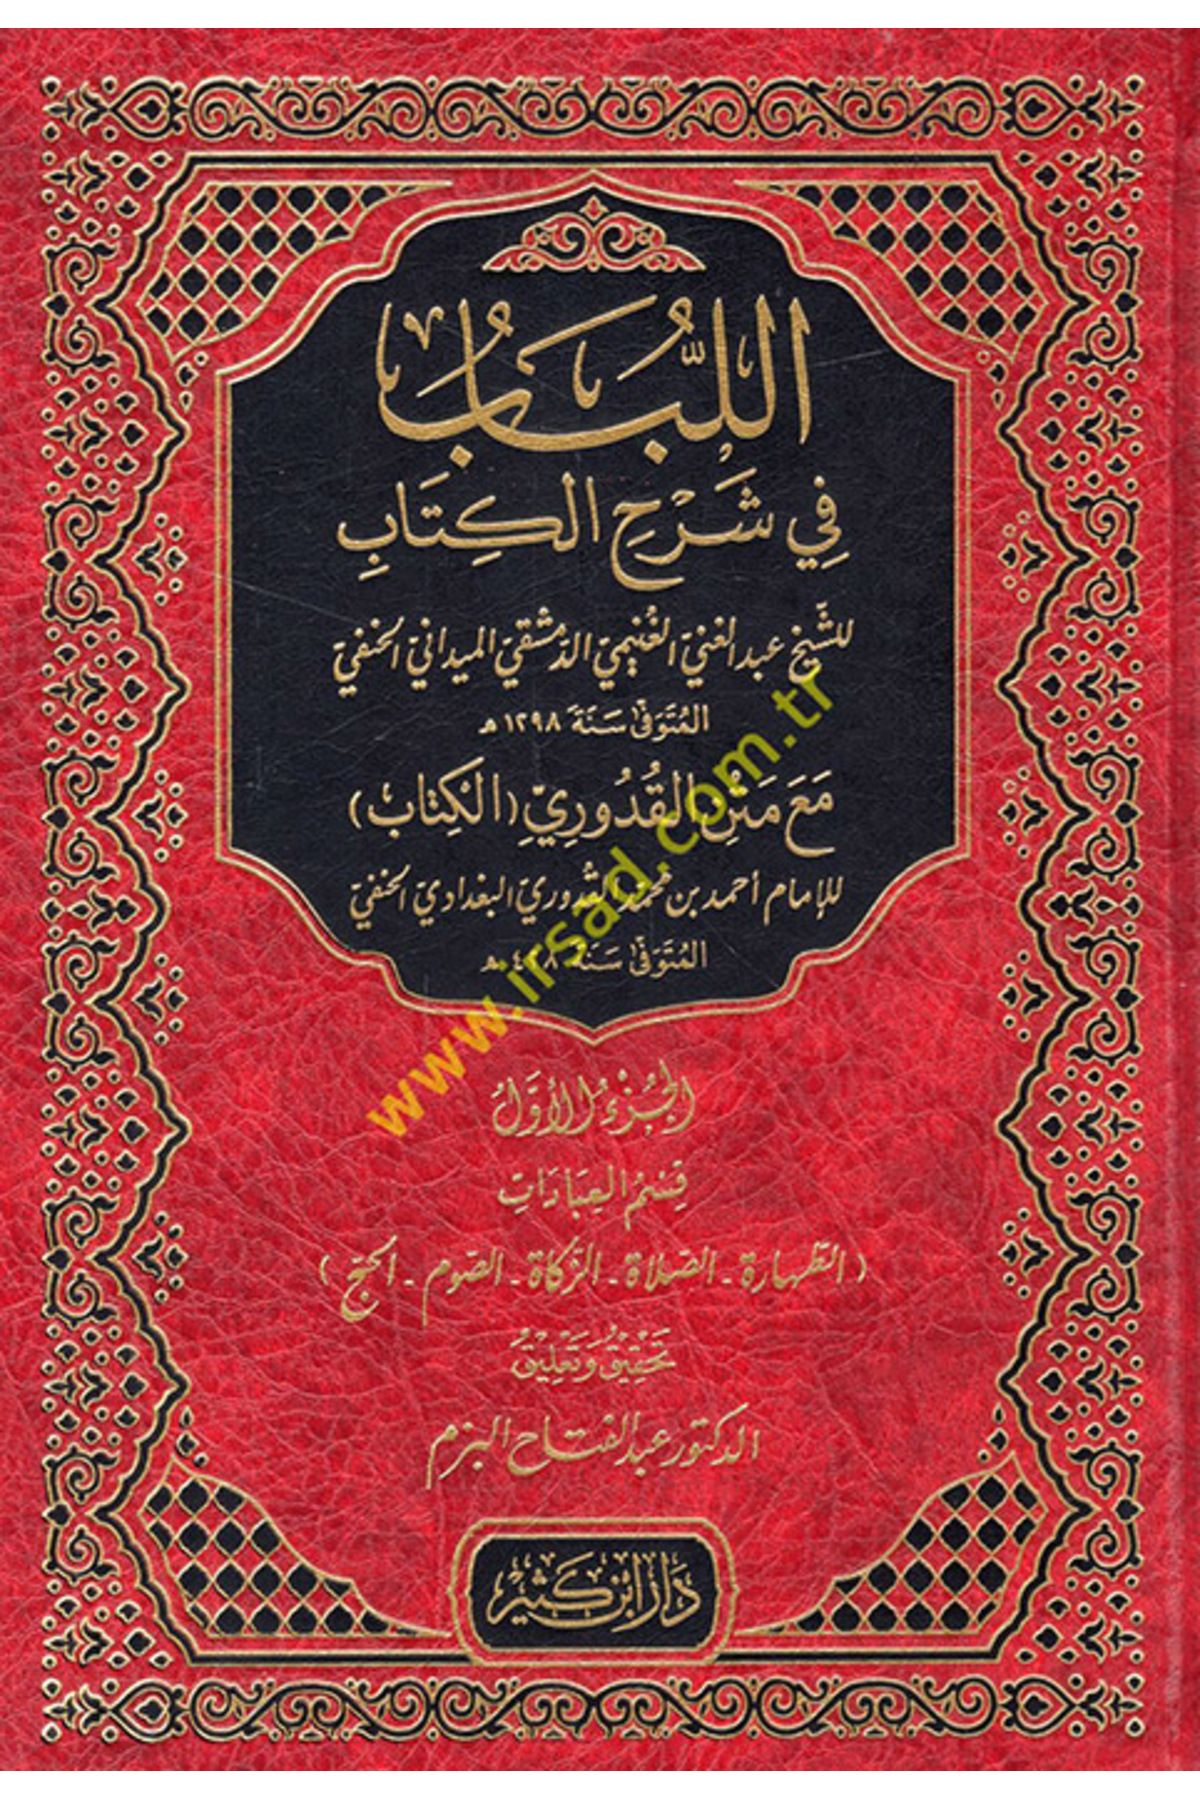 اللُّبَابُ
فِي شَرْحِ الْكِتَابِ
للشيخ عبد الغني الغنيمي الدمشقي الميداني الحنفي
المُتَوَفىٰ سَنَة ١٢٩٨ هـ
مَعَ مَتْنِ القُدُورِيّ (الكِتَاب)
للإمام أحمد بن محمد القدوري البغدادي الحنفي
المُتَوَفىٰ سَنَة ٤٢٨ هـ
الجُزْءُ الأَوَّلُ
قِسْمُ العِبَادَاتِ
(الطهارة - الصلاة - الزكاة - الصوم - الحج)
تَحْقِيقُ وَتَعْلِيقُ
الدكتور عبد الفتاح البزم
دَارُ ابْنِ كَثِيرٍ
www.irsad.com.tr